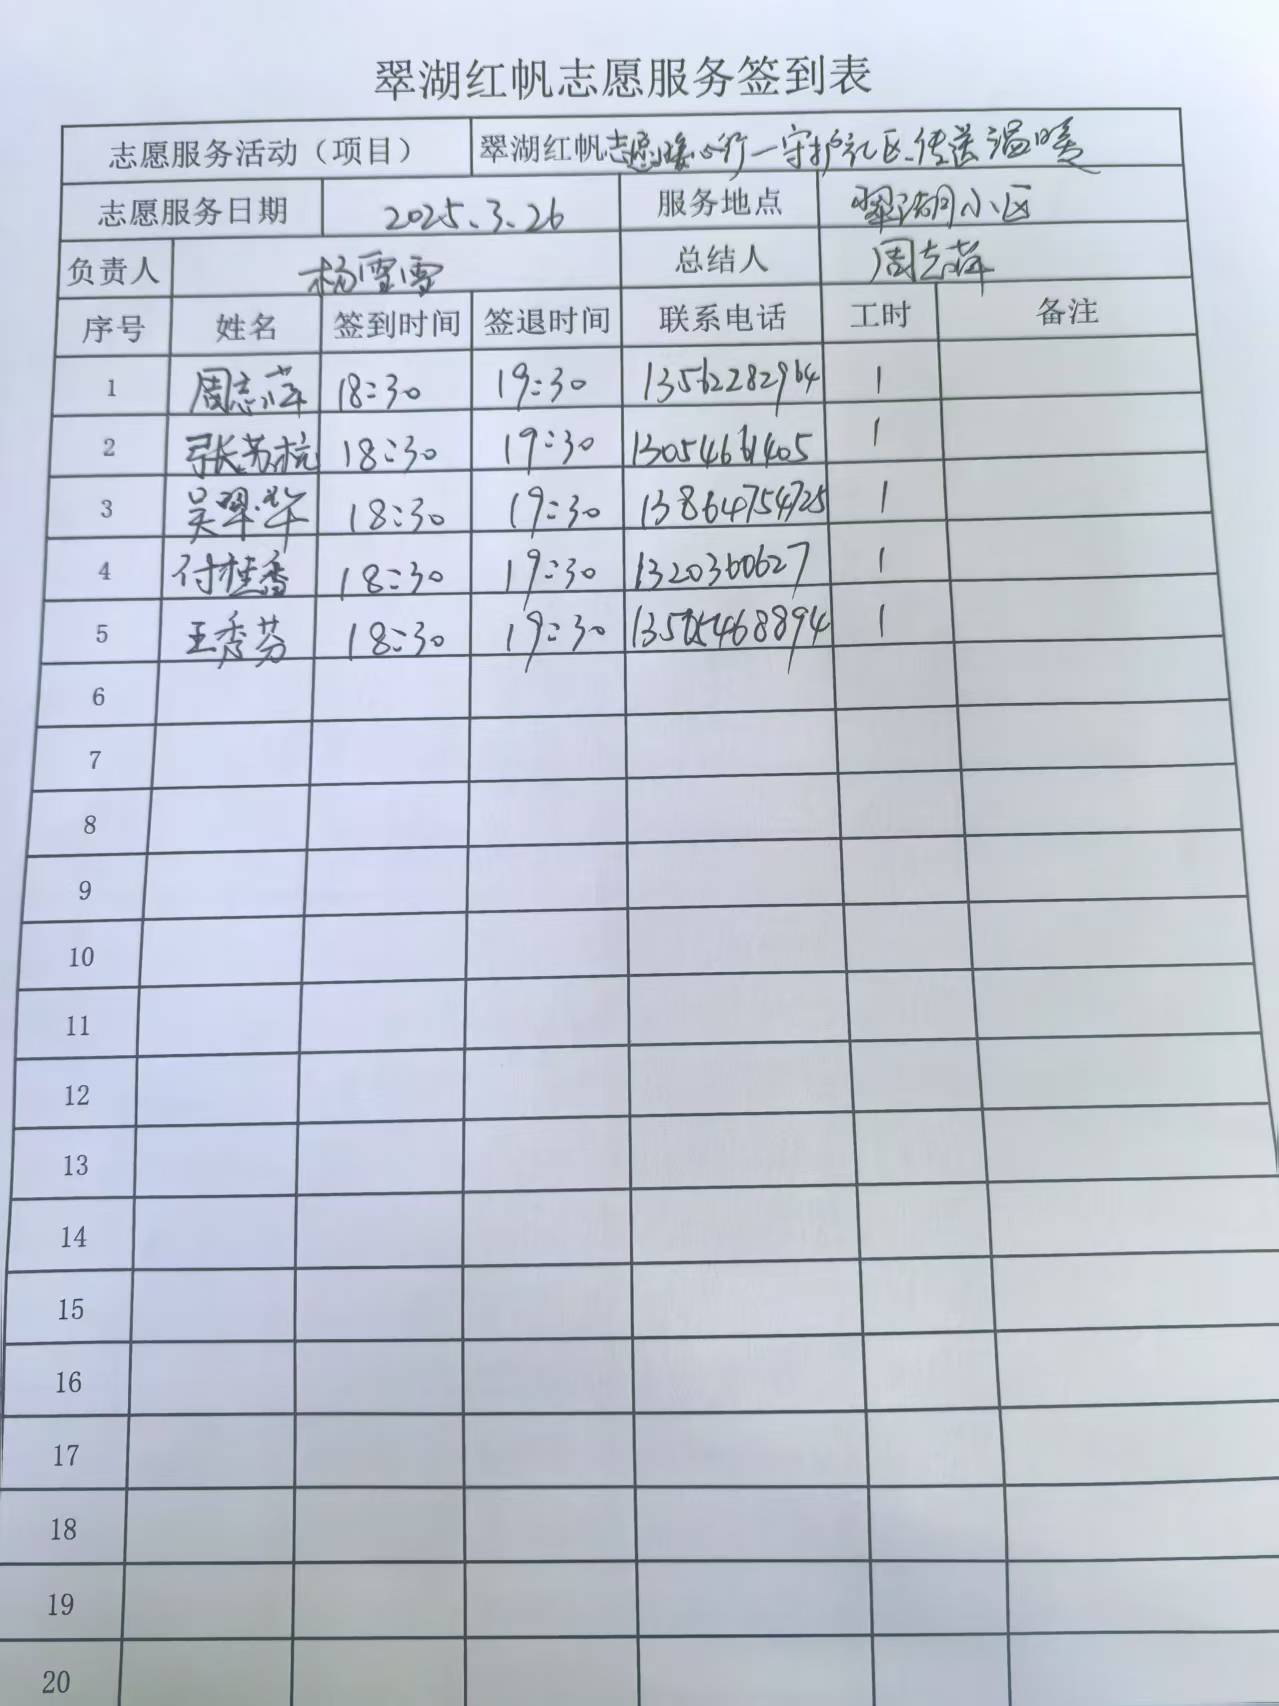 翠湖红帆志愿服务签到表
志愿服务活动（项目） 翠湖红帆志愿暖心行—守护社区、传送温暖
志愿服务日期 2025.3.26 服务地点 翠湖小区
负责人 杨雪雪 总结人 周志萍
序号 姓名 签到时间 签退时间 联系电话 工时 备注
1 周志萍 18:30 19:30 13562282964 1
2 张苏杭 18:30 19:30 13054661405 1
3 吴翠华 18:30 19:30 13864754725 1
4 付桂香 18:30 19:30 1320360627 1
5 王秀芬 18:30 19:30 1 
6
7
8
9
10
11
12
13
14
15
16
17
18
19
20